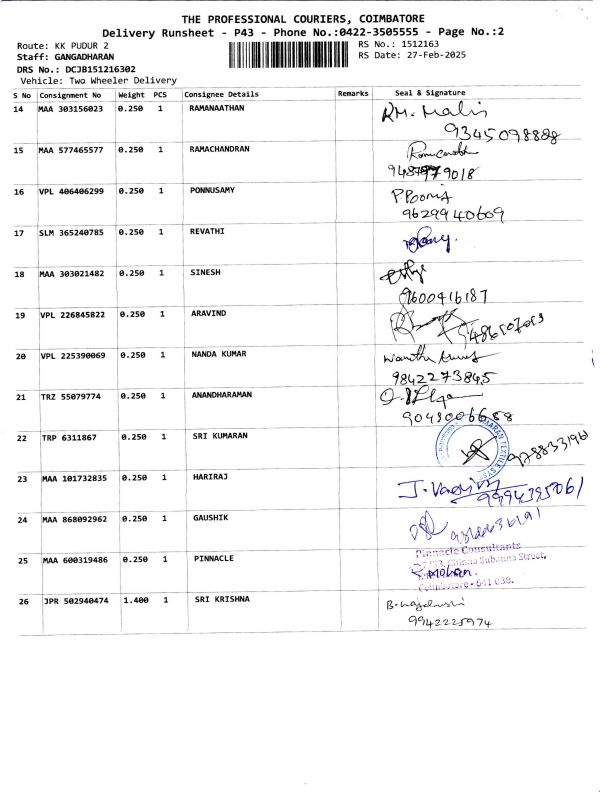 THE PROFESSIONAL COURIERS, COIMBATORE
Delivery Runsheet - P43 - Phone No.:0422-3505555 - Page No.:2
Route: KK PUDUR 2 RS No.: 1512163
Staff: GANGADHARAN RS Date: 27-Feb-2025
DRS No.: DCJB151216302
Vehicle: Two Wheeler Delivery
S No Consignment No Weight PCS Consignee Details Remarks Seal & Signature
14 MAA 303156023 0.250 1 RAMANAATHAN
9345098888
15 MAA 577465577 0.250 1 RAMACHANDRAN
16 VPL 406406299 0.250 1 PONNUSAMY
9629940609
17 SLM 365240785 0.250 1 REVATHI
18 MAA 303021482 0.250 1 SINESH
9600416187
19 VPL 226845822 0.250 1 ARAVIND
20 VPL 225390069 0.250 1 NANDA KUMAR
9842273845
21 TRZ 55079774 0.250 1 ANANDHARAMAN
22 TRP 6311867 0.250 1 SRI KUMARAN
23 MAA 101732835 0.250 1 HARIRAJ
9994395061
24 MAA 868092962 0.250 1 GAUSHIK
25 MAA 600319486 0.250 1 PINNACLE Pinnacle Consultants
Chinna Subanna Street,
Coimbatore - 641 038.
26 JPR 502940474 1.400 1 SRI KRISHNA
9942225974